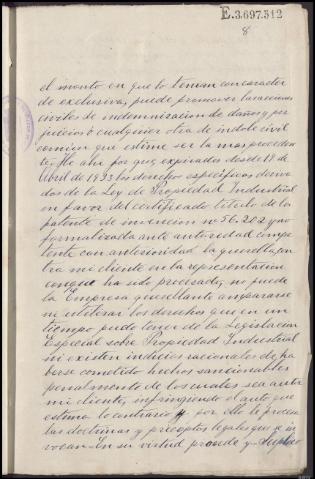 E.3.697.512
8
el invento en que lo tenian con caracter
de exclusiva, puede promover las acciones
civiles de indemnizacion de daños y per
juicios ó cualquier otra de indole civil
comun que estime ser la mas proceden
te; He ahi por que, expirados desde 19 de
Abril de 1933 los derechos especificos deriva
dos de la Ley de Propiedad Industrial
en favor del certificado titulo de la
patente de invencion nº 56.212 y no
formalizada ante autoridad compe
tente con anterioridad la querella con
tra mi cliente en la representacion
conque ha sido procesado, no puede
la Empresa querellante ampararse
ni utilizar los derechos que en un
tiempo pudo tener de la Legislacion
Especial sobre Propiedad Industrial
ni existen indicios racionales de ha
berse cometido hechos sancionables
penalmente de los cuales sea autor
mi cliente, infringiendo el auto que
estima lo contrario y por ello le procesa
las doctrinas y preceptos legales que se in
vocan. En su virtud procede y Suplico